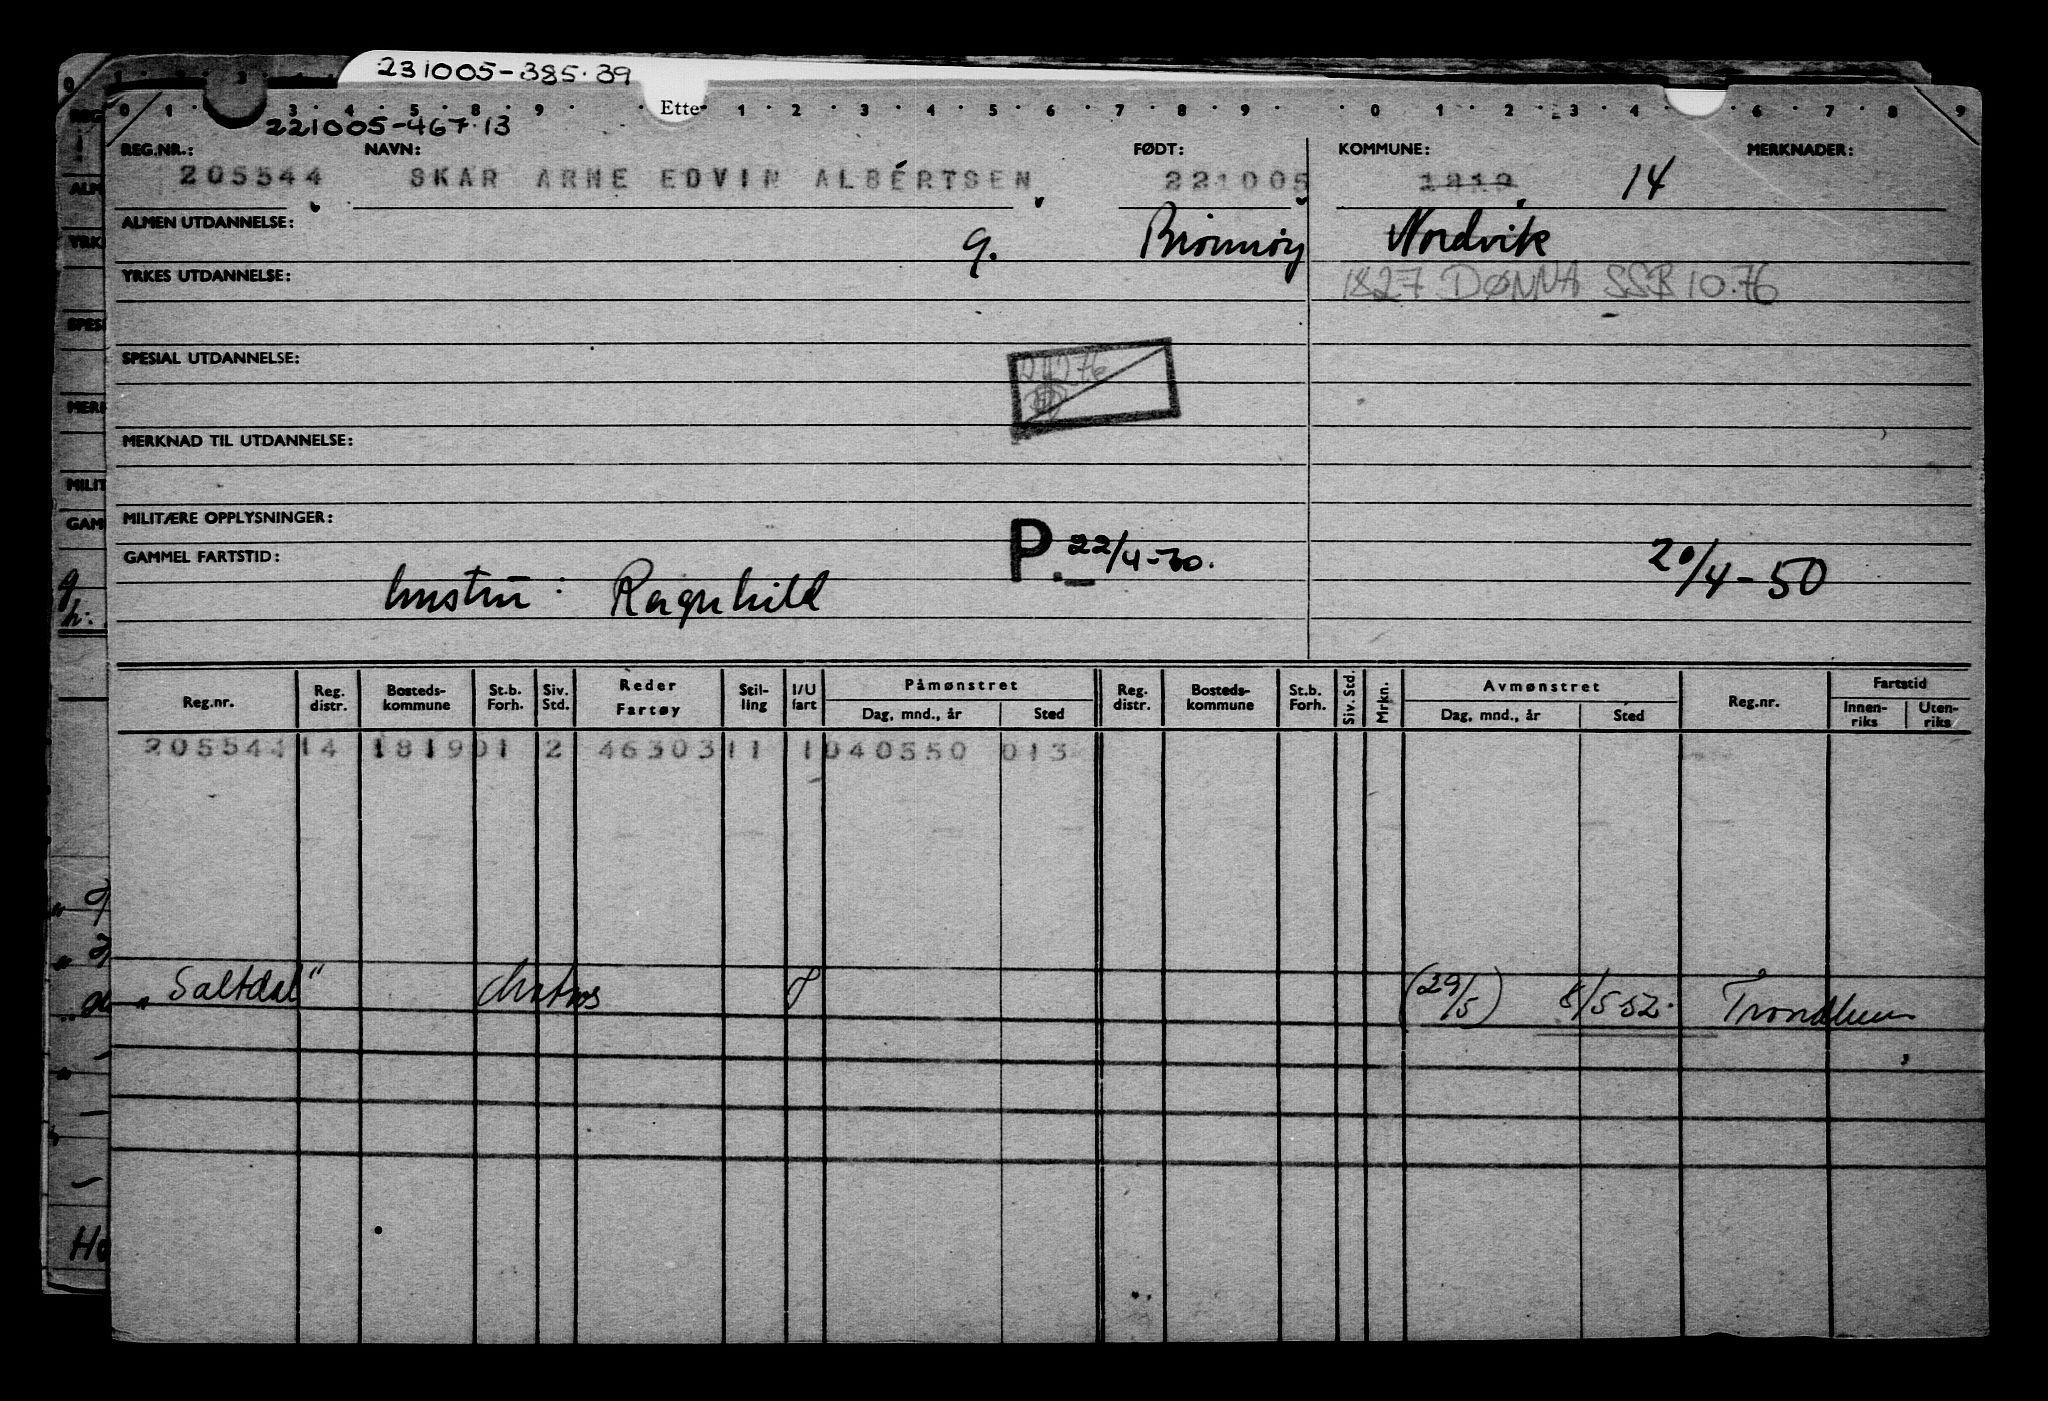 231005-385.39
0 1 3 4 5 8 9 Ette 1 2 3 4 5 6 7 8 9 0 1 2 3 4 6 7 8 9
221005-467.13
REG.NR.: NAVN: FØDT: KOMMUNE: MERKNADER:
205544 SKAR ARNE EDVIN ALBERTSEN 221005 1819 14
ALMEN UTDANNELSE: g. Brønnøy Nordvik
YRKES UTDANNELSE: 1827 DØNNA SSB 10.76
SPESIAL UTDANNELSE:
MERKNAD TIL UTDANNELSE:
MILITÆRE OPPLYSNINGER:
GAMMEL FARTSTID: P. 22/4-70. 20/4-50
hustru: Ragnhild
Reg.nr. Reg. distr. Bosteds-kommune St.b. Forh. Siv. Std. Reder Fartøy Stil-ling I/U fart Påmønstret Dag, mnd., år Sted Reg. distr. Bosteds-kommune St.b. Forh. Siv. Std. Mrkn. Avmønstret Dag, mnd., år Sted Reg.nr. Fartstid Innen-riks Uten-riks
205544 14 1819 01 2 46303 11 1 040550 013
"Saltdal" Matros (29/5) 8/5 52. Trondheim